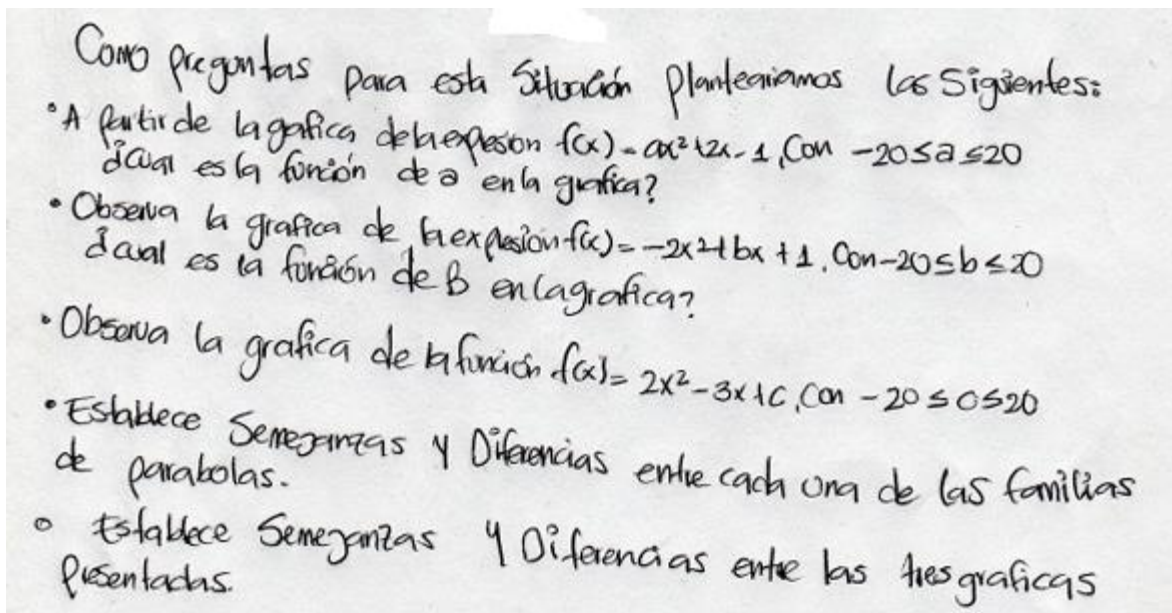 Como preguntas para esta Situación Planteariamos las Siguientes:
• A Partir de la gafica de la expesion f(x) = ax² + 2x - 1, Con -20 ≤ a ≤ 20
¿cual es la función de a en la grafica?
• Observa la grafica de la expresion f(x) = -2x² + bx + 1. Con -20 ≤ b ≤ 20
¿cual es la función de B en la grafica?
• Observa la grafica de la función f(x) = 2x² - 3x + c, Con -20 ≤ c ≤ 20
• Establece Semejanzas y Diferencias entre cada una de las familias
de parabolas.
• Establece Semejanzas y Diferencias entre las tres graficas
Presentadas.